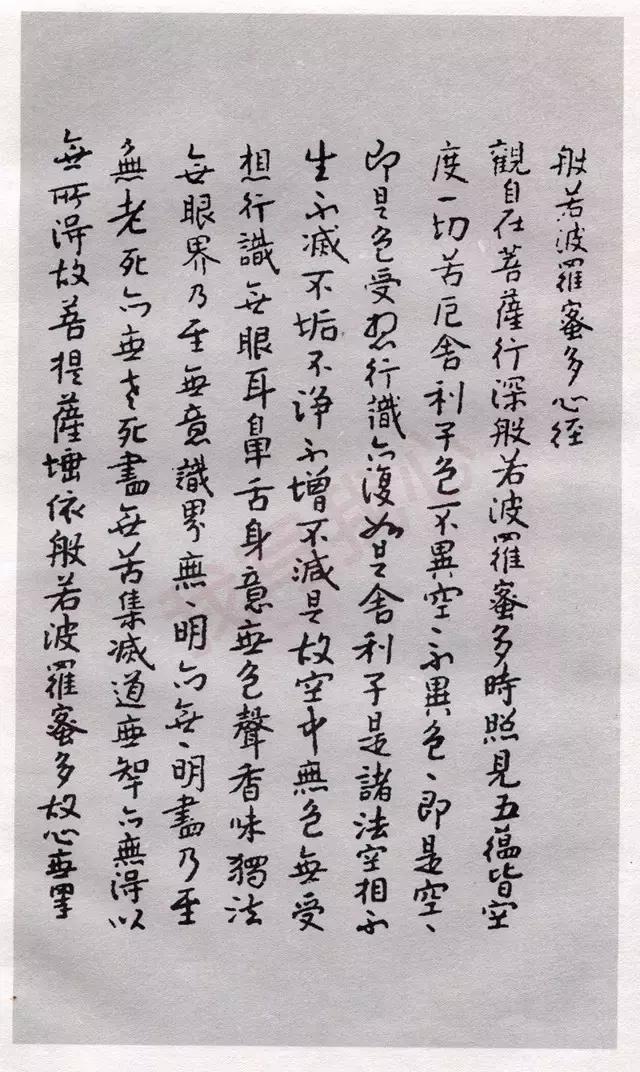 般若波羅蜜多心径
觀自在菩薩行深般若波羅蜜多時照見五蕴皆空
度一切苦厄舍利子色不異空、不異色、即是空、
即是色受想行識亦復如是舍利子是諸法空相不
生不滅不垢不淨不增不減是故空中無色無受
想行識無眼耳鼻舌身意無色聲香味獨法
無眼界乃至無意識界無、明亦無、明盡乃至
無老死亦無老死盡無苦集滅道無智亦無得以
無所得故菩提薩埵依般若波羅蜜多故心無罣